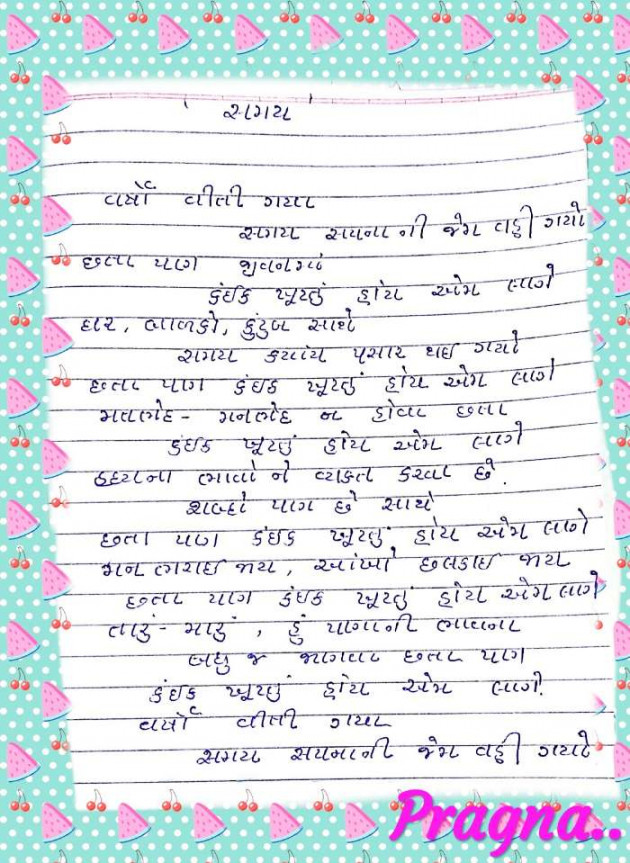 સમય
વર્ષો વીતી ગયા
સમય સપના ની જેમ વહી ગયો
છતા પણ જીવનમાં
કંઈક ખૂટતું હોય એમ લાગે
ઘર, બાળકો, કુંટુબ સાથે
સમય કયાંય પસાર થઈ ગયો
છતા પણ કંઈક ખૂટતું હોય એમ લાગે
મતભેદ - મનભેદ ન હોવા છતા
કંઈક ખૂટતું હોય એમ લાગે
હૃદયના ભાવો ને વ્યકત કરવા છે.
શબ્દો પણ છે સાથે
છતા પણ કંઈક ખૂટતું હોય એમ લાગે
મન ભરાઈ જાય, આંખો છલકાઈ જાય
છતા પણ કંઈક ખૂટતું હોય એમ લાગે
તારું - મારું, હું પણાની ભાવના
બધુ જ ત્યાગવા છતા પણ
કંઈક ખૂટતું હોય એમ લાગે.
વર્ષો વીતી ગયા
સમય સપનાની જેમ વહી ગયો
Pragna..